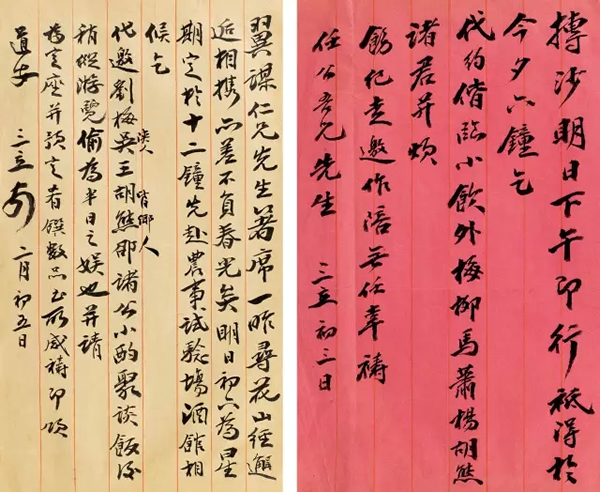 摶沙明日下午即行祗得於
今夕六鐘乞
代約偕臨小飲外梅柳馬蕭楊胡熊
諸君并煩
飭紀走邀作陪無任幸禱
任公吾兄先生 三立 初三日
翼謀仁兄先生箸席一昨尋花山徑邂
逅相携亦差不負春光矣明日初六為星
期定於十二鐘先赴農事試驗場酒館相
候乞
代邀劉梅吳王胡熊邵諸公小酌聚談飯後
稍縱游覽偷為半日之娛也并請
為定座并預定肴饌數品至所感禱即頌
道安 三立 二月初五日